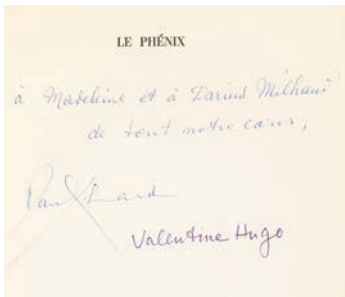 LE PHÉNIX
à Madeleine et à Darius Milhaud
de tout notre cœur,
Paul Eluard
Valentine Hugo